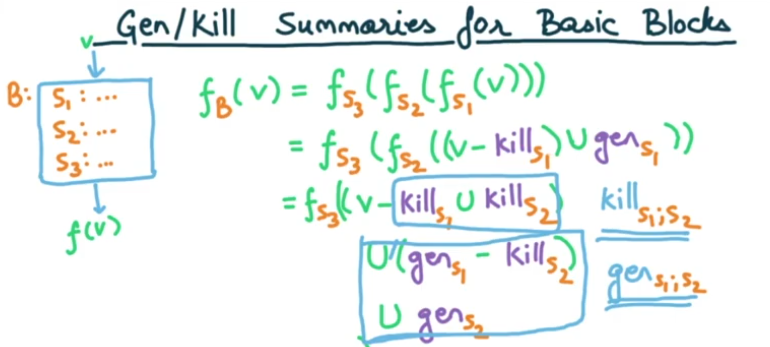 Gen/Kill Summaries for Basic Blocks
v
B: S1: ...
S2: ...
S3: ...
f(v)
fB(v) = fS3(fS2(fS1(v)))
= fS3(fS2((v - killS1) ∪ genS1))
= fS3((v - killS1 ∪ killS2)
∪ (genS1 - killS2)
∪ genS2
killS1;S2
genS1;S2